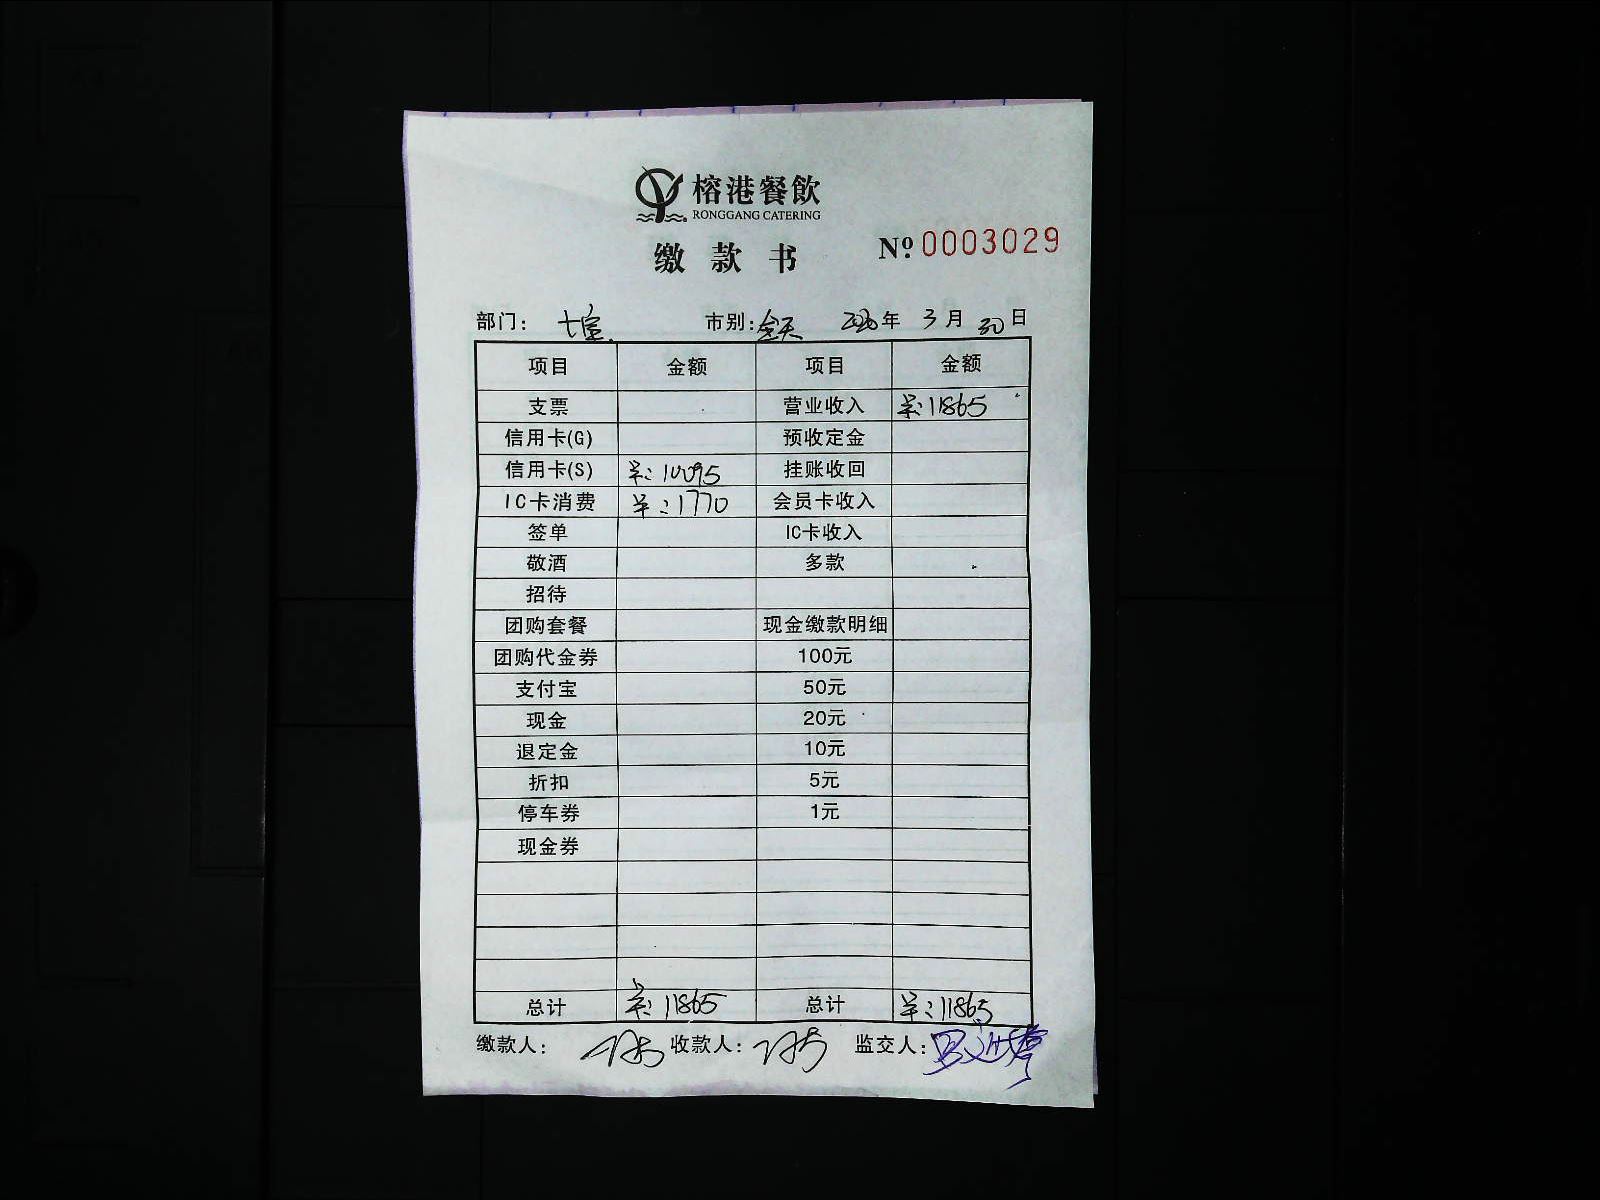 榕港餐飲
RONGGANG CATERING
缴款书 Nº 0003029
部门: 市别: 全天 2020年 3月 30日
项目 金额 项目 金额
支票 营业收入 半:11865
信用卡(G) 预收定金
信用卡(S) 半:10095 挂账收回
IC卡消费 半:1770 会员卡收入
签单 IC卡收入
敬酒 多款
招待
团购套餐 现金缴款明细
团购代金券 100元
支付宝 50元
现金 20元
退定金 10元
折扣 5元
停车券 1元
现金券
总计 半:11865 总计 半:11865
缴款人: 收款人: 监交人: